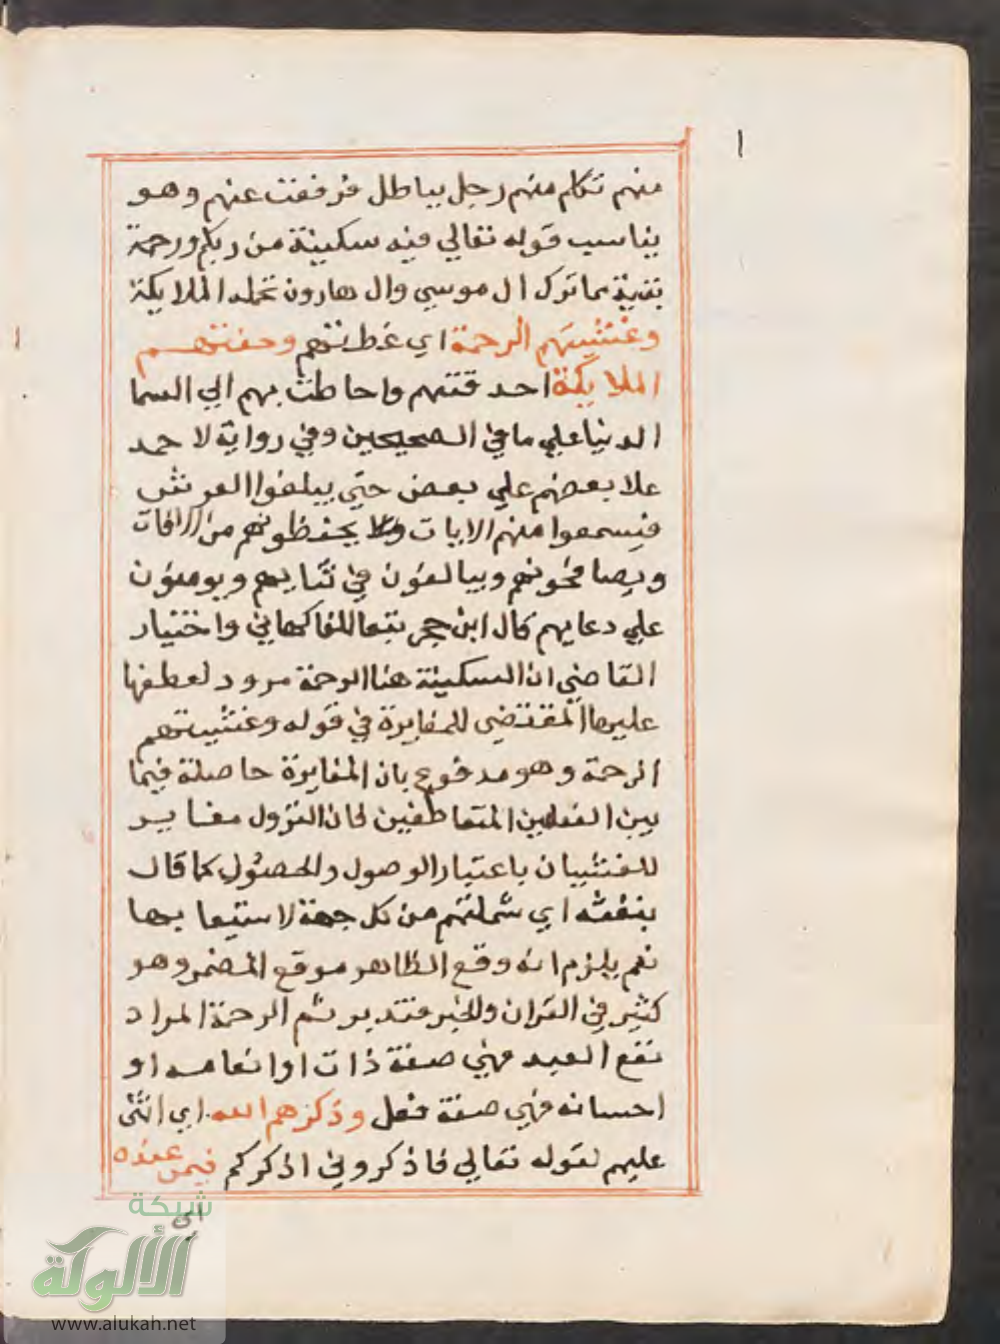 ا
منهم تكلم منهم رجل بباطل فرفعت عنهم وهو
يناسب قوله تعالي فيه سكينة من ربكم ورحمة
بقية مما ترك ال موسي وال هارون تحمله الملايكة
وغشيتهم الرحمة اي غطتهم وحفتهم
الملايكة احدقتهم واحاطت بهم الي السما
الدنيا علي ما في الصحيحين وفي رواية لاحمد
علا بعضهم علي بعض حتي يبلغوا العرش
فيسمعوا منهم الايات ويحفظونهم من الافات
ويصافحونهم ويبالغون في ثنايهم ويومنون
علي دعايهم قال ابن حجر تبعا للفاكهاني واختيار
القاضي ان السكينة هنا الرحمة مردود لعطفها
عليها المقتضي للمغايرة في قوله وغشيتهم
الرحمة وهو مدفوع بان المغايرة حاصلة فيما
بين الفعلين المتعاطفين لان النزول مغاير
للغشيان باعتبار الوصول والحصول كما قال
بنفسه اي شملتهم من كل جهة لاستيعابها
نعم يلزم انه وقع الظاهر موقع المضمر وهو
كثير في القران والخبر فتدبر ثم الرحمة المراد
نفع العبد فهي صفة ذات او انعامه او
احسانه فهي صفة فعل وذكرهم الله اي اثنى
عليهم لقوله تعالي فاذكروني اذكركم فيمن عنده
اي
شبكة
الألوكة
www.alukah.net